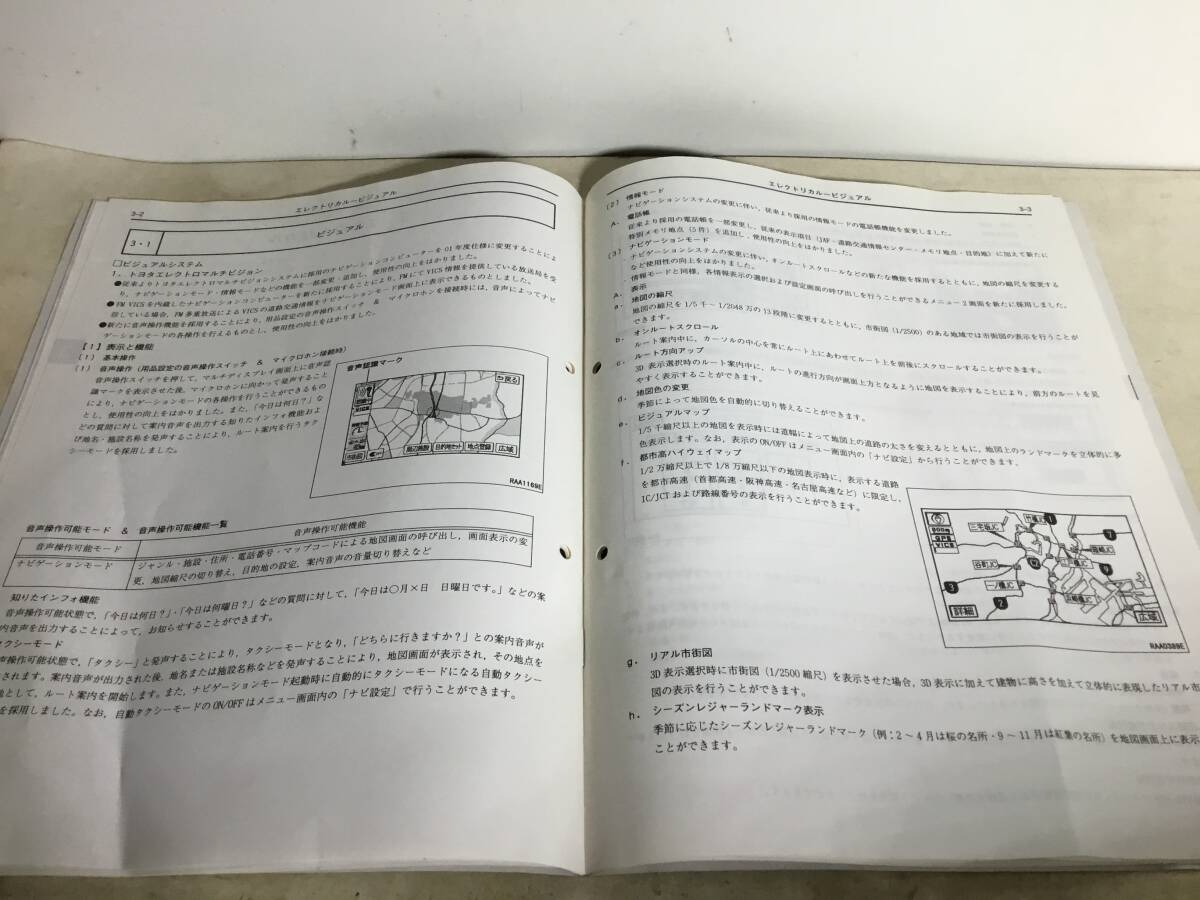 3-2
エレクトリカルービジュアル
3・1
ビジュアル
□ビジュアルシステム
1．トヨタエレクトロマルチビジョン
●従来よりトヨタエレクトロマルチビジョンシステムに採用のナビゲーションコンピューターを01年度仕様に変更することによ
り，ナビゲーションモード・情報モードなどの機能を一部変更・追加し，使用性の向上をはかりました。
●FM VICSを内蔵したナビゲーションコンピューターを新たに採用することにより，FMにてVICS情報を提供している放送局を受
信している場合，FM多重放送によるVICSの道路交通情報をナビゲーションモード画面上に表示できるものとしました。
●新たに音声操作機能を採用することにより，用品設定の音声操作スイッチ ＆ マイクロホンを接続時には，音声によってナビ
ゲーションモードの各操作を行えるものとし，使用性の向上をはかりました。
【1】表示と機能
(1) 基本操作
(1) 音声操作（用品設定の音声操作スイッチ ＆ マイクロホン接続時）
音声操作スイッチを押して，マルチディスプレイ画面上に音声認
識マークを表示させた後，マイクロホンに向かって発声すること
により，ナビゲーションモードの各操作を行うことができるものと
し，使用性の向上をはかりました。また，「今日は何日？」な
どの質問に対して案内音声を出力する知りたインフォ機能およ
び地名・施設名称を発声することにより，ルート案内を行うタク
シーモードを採用しました。
音声認識マーク
戻る
VICS
市街図
周辺施設
目的地セット
地点登録
広域
RAA1169E
音声操作可能モード ＆ 音声操作可能機能一覧
音声操作可能モード
音声操作可能機能
ナビゲーションモード
ジャンル・施設・住所・電話番号・マップコードによる地図画面の呼び出し，画面表示の変
更，地図縮尺の切り替え，目的地の設定，案内音声の音量切り替えなど
知りたインフォ機能
音声操作可能状態で，「今日は何日？」・「今日は何曜日？」などの質問に対して，「今日は○月×日 日曜日です。」などの案
内音声を出力することによって，お知らせすることができます。
タクシーモード
声操作可能状態で，「タクシー」と発声することにより，タクシーモードとなり，「どちらに行きますか？」との案内音声が
されます。案内音声が出力された後，地名または施設名称などを発声することにより，地図画面が表示され，その地点を
地として，ルート案内を開始します。また，ナビゲーションモード起動時に自動的にタクシーモードになる自動タクシー
を採用しました。なお，自動タクシーモードのON/OFFはメニュー画面内の「ナビ設定」で行うことができます。
エレクトリカルービジュアル
3-3
(2) 情報モード
ナビゲーションシステムの変更に伴い，従来より採用の情報モードの電話帳機能を変更しました。
A. 電話帳
従来より採用の電話帳を一部変更し，従来の表示項目（JAF・道路交通情報センター・メモリ地点・目的地）に加えて新たに
特別メモリ地点（5件）を追加し，使用性の向上をはかりました。
(3) ナビゲーションモード
ナビゲーションシステムの変更に伴い，オンルートスクロールなどの新たな機能を採用するとともに，地図の縮尺を変更する
など使用性の向上をはかりました。
情報モードと同様，各情報表示の選択および設定画面の呼び出しを行うことができるメニュー2画面を新たに採用しました。
A. 表示
a. 地図の縮尺
地図の縮尺を1/5千～1/2048万の13段階に変更するとともに，市街図（1/2500）のある地域では市街図の表示を行うことが
できます。
b. オンルートスクロール
ルート案内中に，カーソルの中心を常にルート上にあわせてルート上を前後にスクロールすることができます。
c. ルート方向アップ
3D表示選択時のルート案内中に，ルートの進行方向が画面上方となるように地図を表示することにより，前方のルートを見
やすく表示することができます。
d. 地図色の変更
季節によって地図色を自動的に切り替えることができます。
e. ビジュアルマップ
1/5千縮尺以上の地図を表示時には道幅によって地図上の道路の太さを変えるとともに，地図上のランドマークを立体的に多
色表示します。なお，表示のON/OFFはメニュー画面内の「ナビ設定」から行うことができます。
f. 都市高ハイウェイマップ
1/2万縮尺以上で1/8万縮尺以下の地図表示時に，表示する道路
を都市高速（首都高速・阪神高速・名古屋高速など）に限定し，
IC/JCTおよび路線番号の表示を行うことができます。
800m
GPS
VICS
三宅坂JC
竹橋JC
箱崎JC
谷町JC
江戸橋JC
一ノ橋JC
詳細
広域
RAA0389E
g. リアル市街図
3D表示選択時に市街図（1/2500縮尺）を表示させた場合，3D表示に加えて建物に高さを加えて立体的に表現したリアル市
図の表示を行うことができます。
h. シーズンレジャーランドマーク表示
季節に応じたシーズンレジャーランドマーク（例：2～4月は桜の名所・9～11月は紅葉の名所）を地図画面上に表示
ことができます。